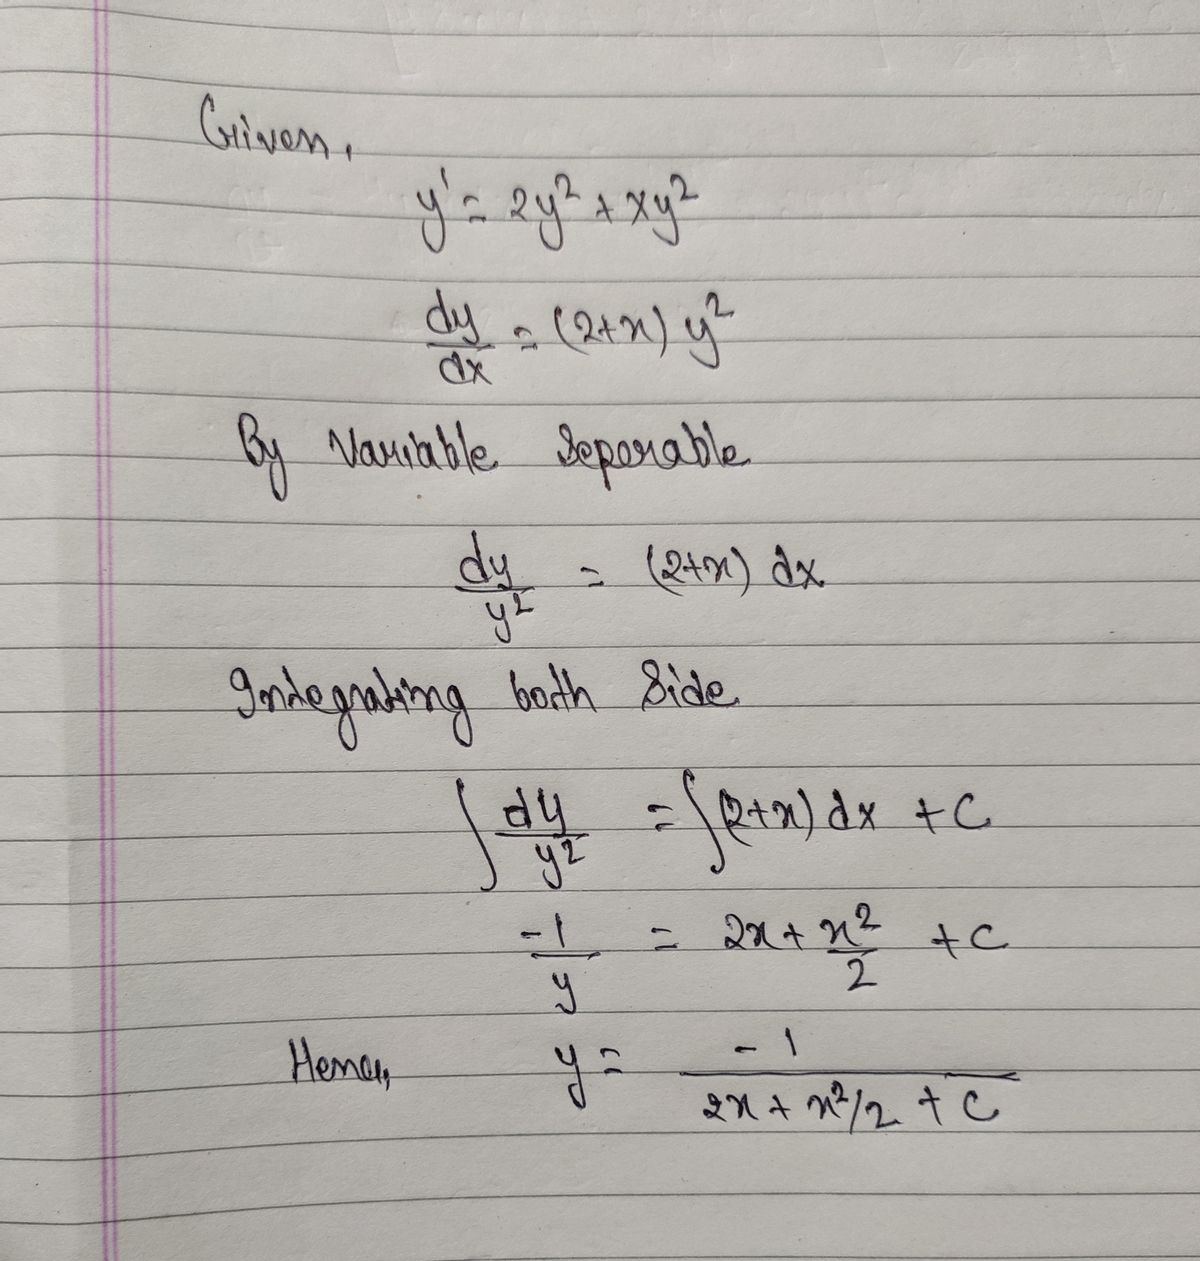 Given,
y' = 2y² + xy²
dy/dx = (2+x) y²
By Variable Seperable
dy/y² = (2+x) dx
Integrating both Side
∫ dy/y² = ∫(2+x) dx + C
-1/y = 2x + x²/2 + C
Hence, y = -1/(2x + x²/2 + C)